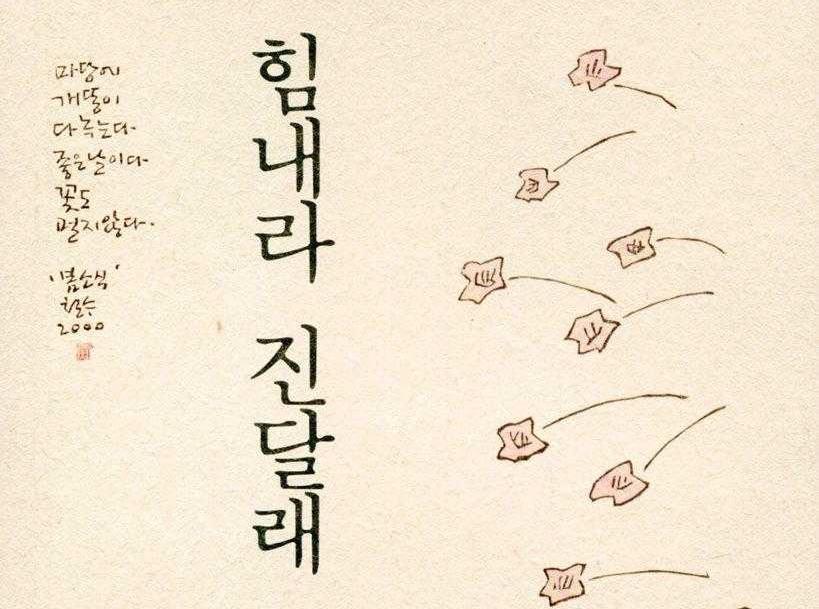 마당에
개똥이
다 녹는다
좋은날이다
꽃도
멀지않다.
'봄소식'
철수
2000
힘내라 진달래